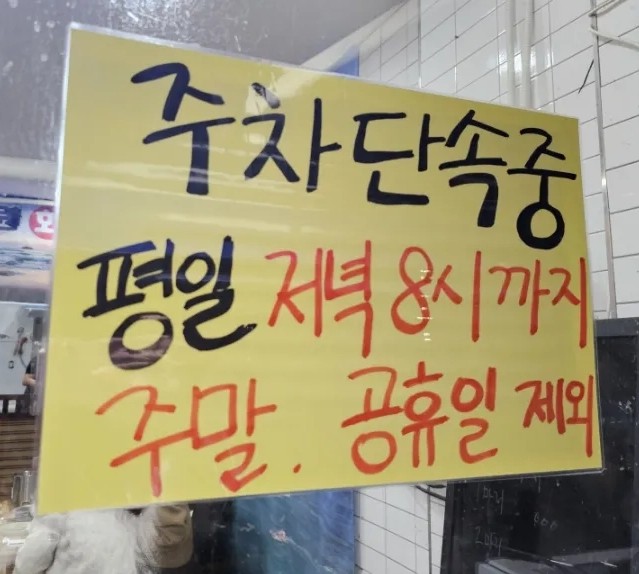 주차단속중
평일 저녁 8시까지
주말. 공휴일 제외